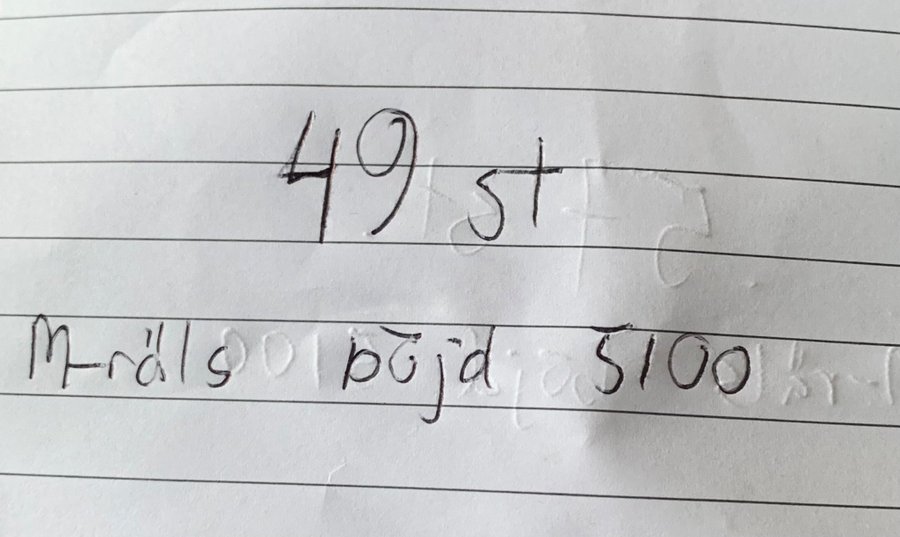 49 st
M-räls böjd 5100